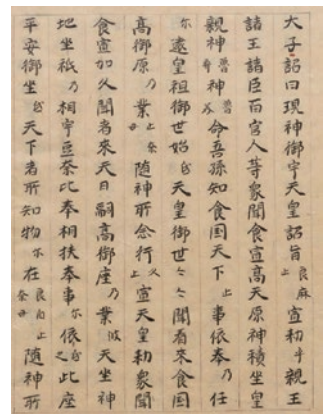 大子詔曰現神御宇天皇詔旨良麻止宣勅乎親王
諸王諸臣百官人等衆聞食宣高天原神積坐皇
親神魯弃神魯美命吾孫知食国天下止事依奉乃任
尓遠皇祖御世始弖天皇御世々々聞看来食国
高御原乃業止奈母随神所念行久止宣天皇勅衆聞
食宣加久聞看来天日嗣高御座乃業波天坐神
地坐祇乃相宇豆奈比奉相扶奉事尓依弖之此座
平安御坐弖天下者所知物尓在良自止奈母随神所